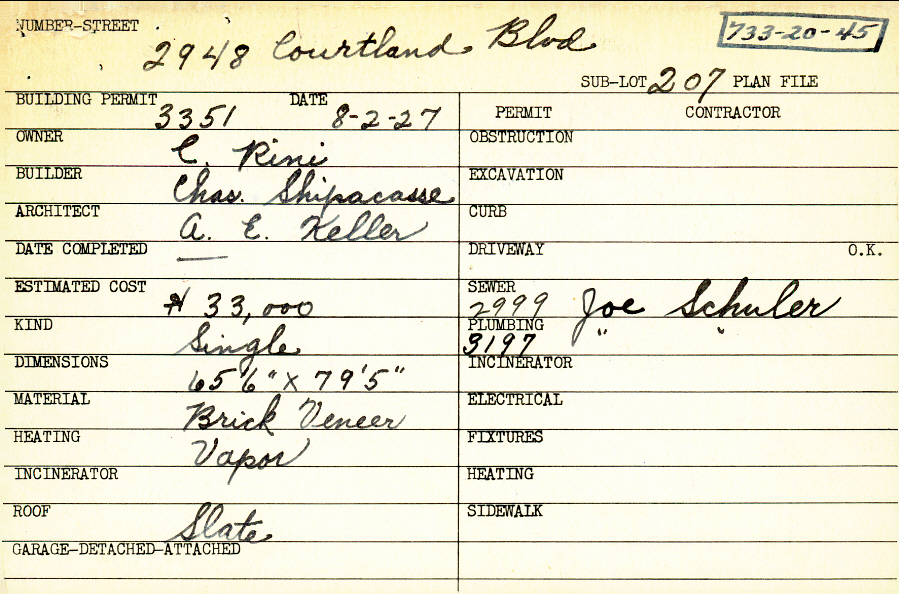 NUMBER-STREET
2948 Courtland Blvd
733-20-45
SUB-LOT 207 PLAN FILE
BUILDING PERMIT 3351 DATE 8-2-27
OWNER C. Rini
BUILDER Chas. Shipacasse
ARCHITECT A. E. Keller
DATE COMPLETED —
ESTIMATED COST $ 33,000
KIND Single
DIMENSIONS 65'6" X 79'5"
MATERIAL Brick Veneer
HEATING Vapor
INCINERATOR
ROOF Slate
GARAGE-DETACHED-ATTACHED
PERMIT CONTRACTOR
OBSTRUCTION
EXCAVATION
CURB
DRIVEWAY O.K.
SEWER 2999 Joe Schuler
PLUMBING 3197 " "
INCINERATOR
ELECTRICAL
FIXTURES
HEATING
SIDEWALK